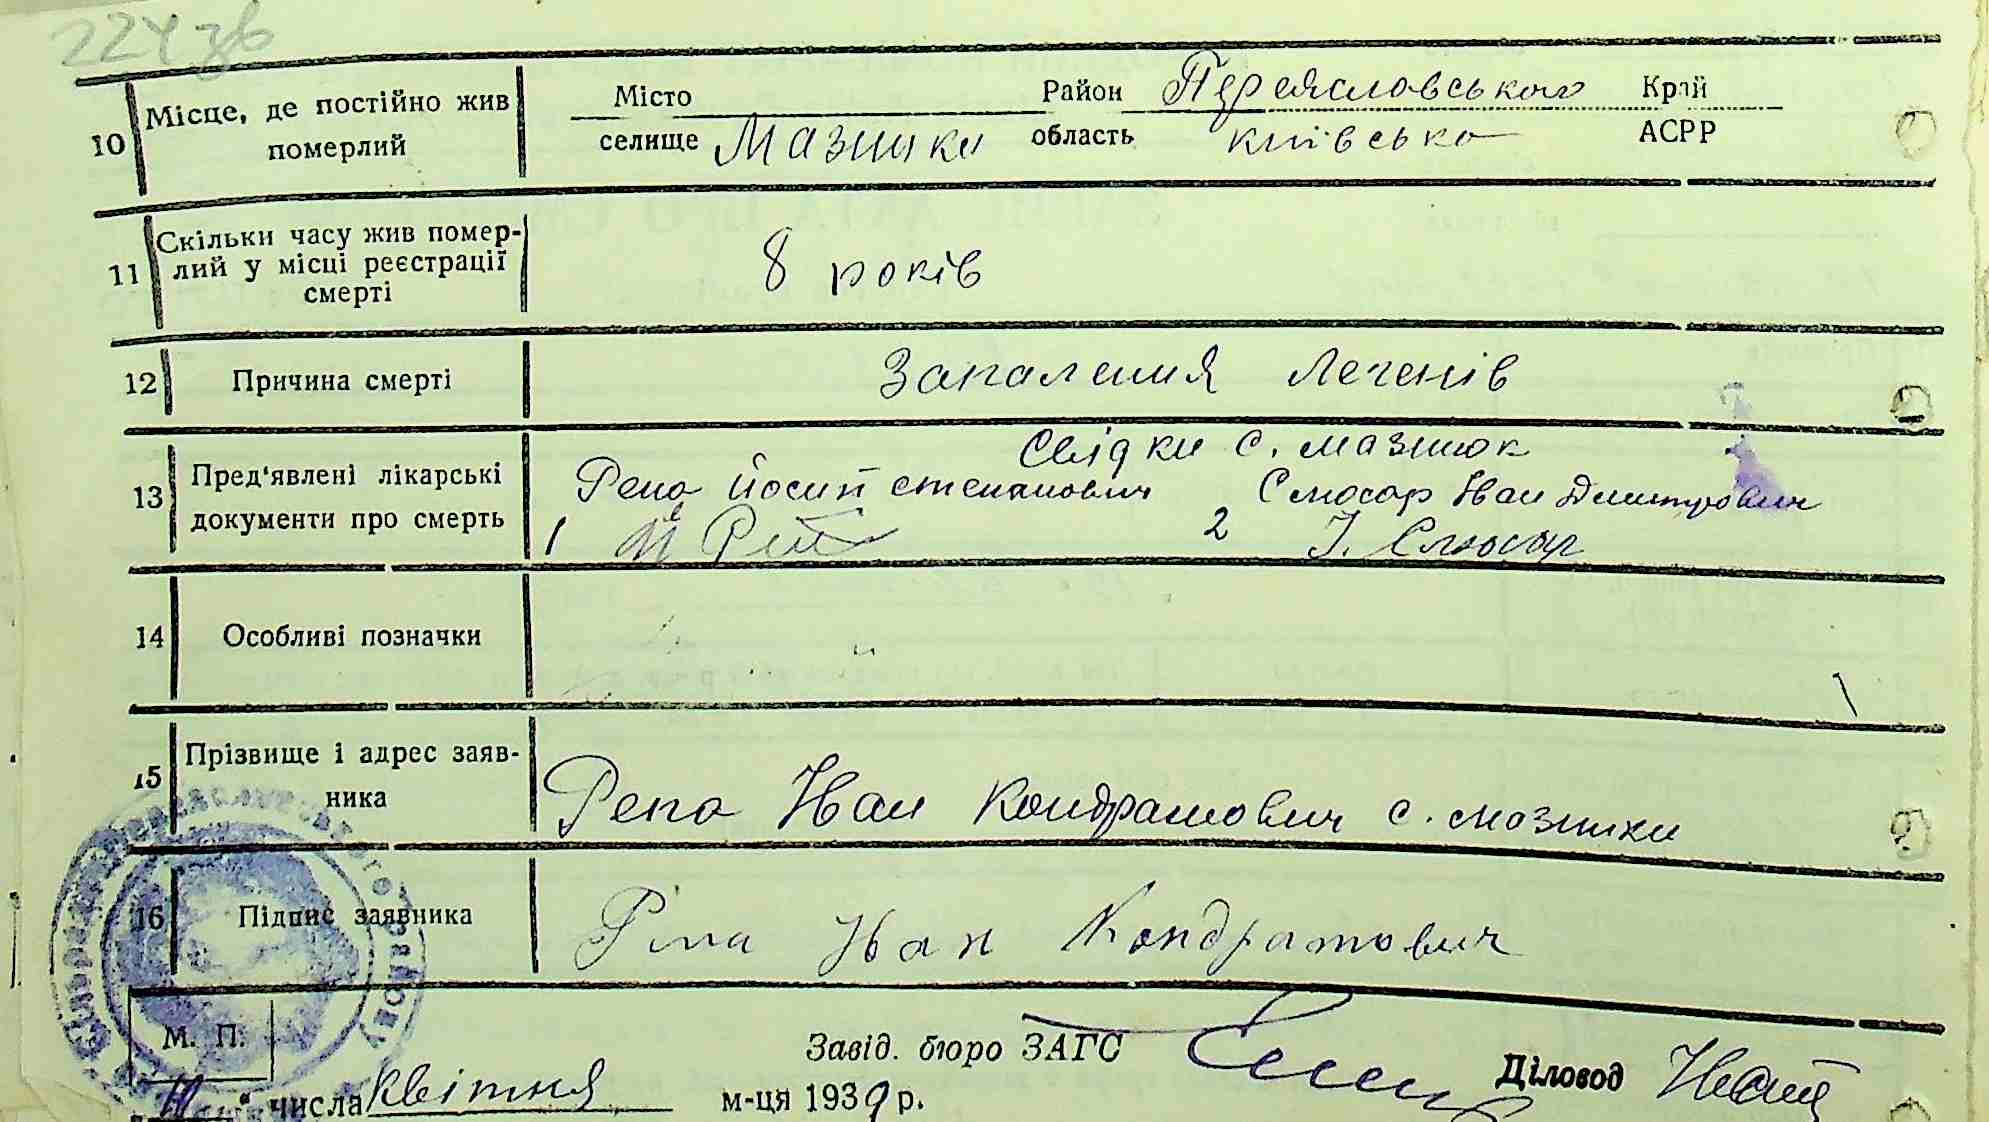 224 зв
10 Місце, де постійно жив померлий
Місто Район Переясловського Край
селище Мазінки область київсько АСРР
11 Скільки часу жив помер-
лий у місці реєстрації
смерті
8 років
12 Причина смерті Запалення Легенів
13 Пред'явлені лікарські
документи про смерть
Свідки с. мазінок
Репа Йосип степанович Слюсар Иван Дмитрович
1 Й Реп 2 І. Слюсар
14 Особливі позначки
15 Прізвище і адрес заяв-
ника
Репа Иван Кондратович с. мазінки
16 Підпис заявника Ріпа Иван Кондратович
М. П. Завід. бюро ЗАГС Діловод
числа квітня м-ця 1939 р.